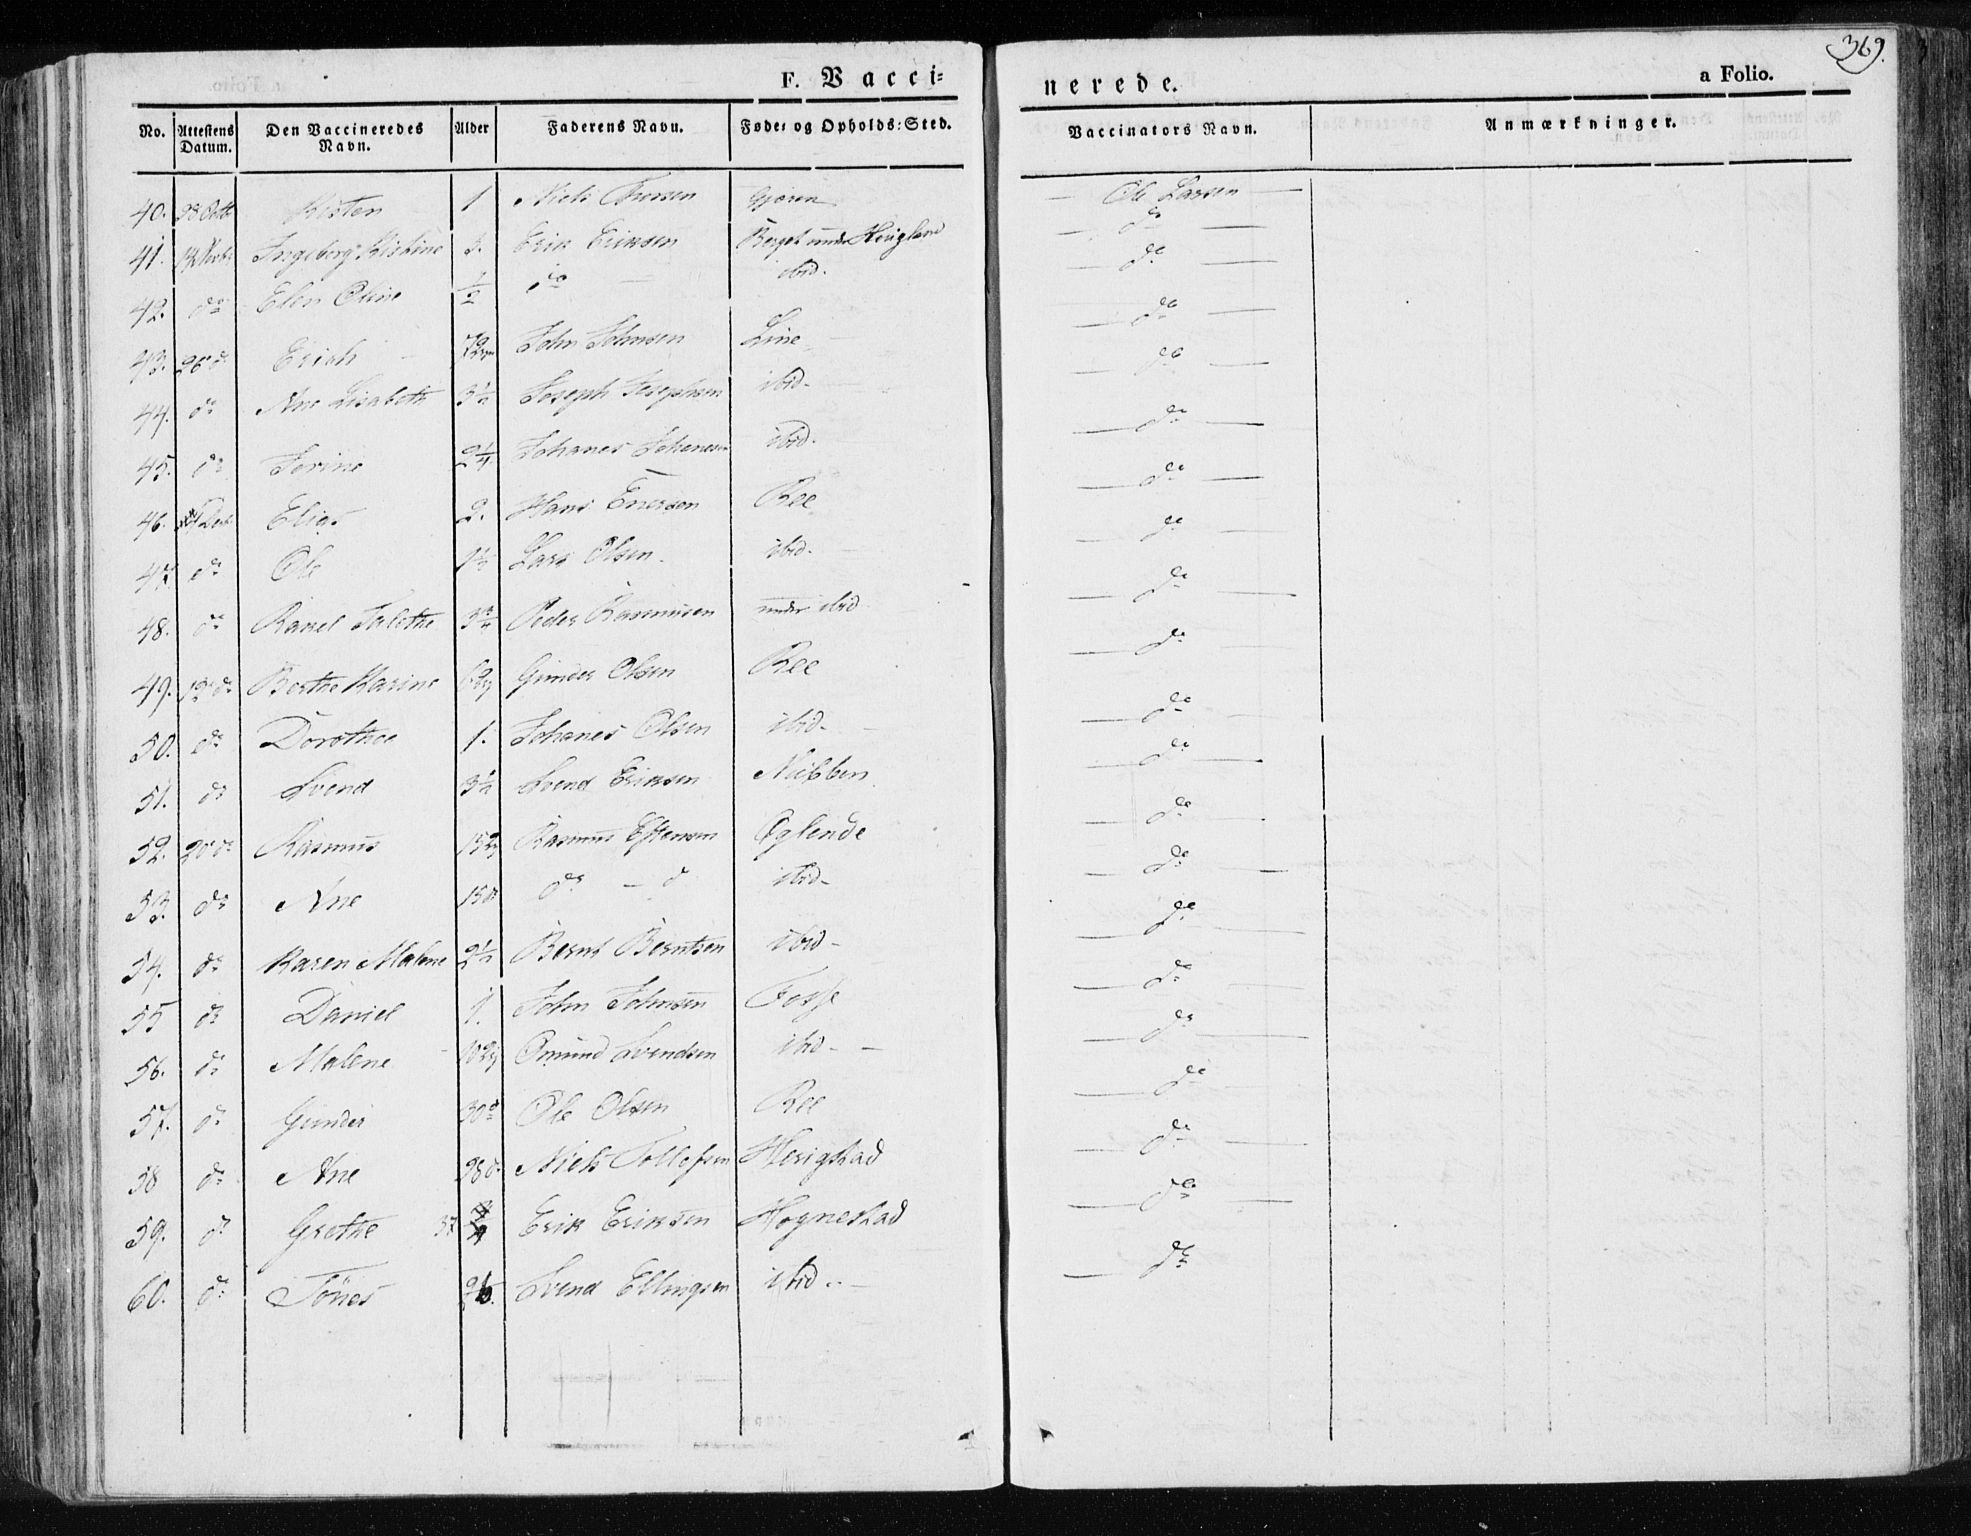 369.
F. Vacci=
nerede.
a Folio.
No. Attestens Datum. Den Vaccineredes Navn. Alder Faderens Navn. Føde= og Opholds=Sted. Vaccinators Navn. Anmærkninger.
40. 28 Octb Kisten 1 Niels — Ole Larsen —
41. Ingeborg Kristine 3. Erik Eriksen Berget under — do —
42. do Elen Oline 1/2 do ibid. — do —
43. 20 d. Erich John Johnsen Line — do —
44. do Ane Lisabeth 3 1/2 Joseph Josephsen ibid. — do —
45. do Serine 2 1/4 Johanes Johanesen ibid. — do —
46. Elias 2. Hans Enersen Ree — do —
47. do Ole 1 1/2 Lars Olsen. ibid. — do —
48. do Rakel Talethe Peder Rasmusen under ibid — do —
49. 12 do Berthe Karine Gunder Olsen Ree — do —
50. do Dorothea 1. Johanes Olsen ibid. — do —
51. do Svend 3 1/2 Svend Eriksen Nubben — do —
52. 20 do Rasmus Rasmus Eftensen Øglende — do —
53. do Ane 15 do do — d ibid — do —
54. do Karen Malene 2 1/2 Bernt Berntsen ibid — do —
55 do Daniel 1. John Johnsen Fosse — do —
56. do Malene Omund Svendsen ibid — do —
57. do Gunder 30 d Ole Olsen Ree — do —
58 do Ane 28 d. Niels Tollefsen Herigstad — do —
59. do Grethe 37 Erik Eriksen Hognestad — do —
60. do Tönes Svend Ellingsen ibid. — do —